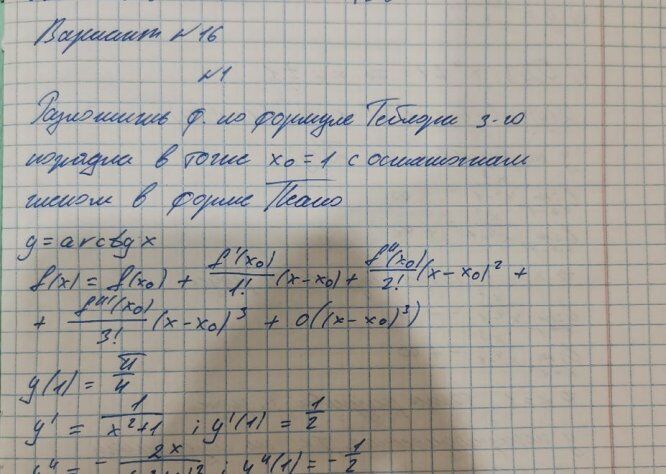 Вариант №16
№1
Разложить ф. по формуле Тейлора 3-го
порядка в точке x₀ = 1 с остаточным
членом в форме Пеано
y = arctg x
f(x) = f(x₀) + f'(x₀)/1! (x - x₀) + f''(x₀)/2! (x - x₀)² +
+ f'''(x₀)/3! (x - x₀)³ + o((x - x₀)³)
y(1) = π/4
y' = 1/(x²+1) ; y'(1) = 1/2
y'' = - 2x/ ; y''(1) = - 1/2